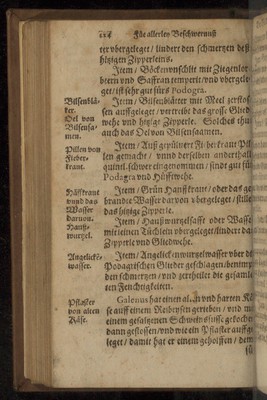 Für allerley Beschwernuß
ter vbergeleget / lindert den schmertzen deß
hitzigen Zipperleins.
Item / Böcken vnschlit mit Ziegenlor
bern vnd Saffran temperirt / vnd vbergele
get / ist sehr gut fürs Podogra.
Bilsenblä-
ter.
Oel von
Bilsensa-
men.
Item / Bilsenblätter mit Meel zerstos-
sen auffgeleget / vertreibt das grosse Glied-
wehe vnd hitzige Zipperle. Solches thut
auch das Oel von Bilsensaamen.
Pillen von
Fieber-
kraut.
Item / Auß gepülvert Fieberkraut Pil-
len gemacht / vnnd derselben anderthalb
quintl. schwer eingenommen / seind gut für
Podagra vnd Hüfftwehe.
vnnd das
Wasser
daruon.
wurtzel.
Item / Grün Hanffkraut / oder das ge-
brandte Wasser daruon vbergeleget / stillet
das hitzige Zipperle.
Item / Haußwurtzelsafft oder Wasser
mit leinen Tüchlein vbergeleget / lindert das
Zipperle vnd Gliedwehe.
Angelick-
wasser.
Item / Angelickenwurtzelwasser vber die
Podagrischen Glieder geschlagen / benimpt
den schmertzen / vnd zertheilet die gesamle-
ten Feuchtigkeiten.
Pflaster
von alten
Käse.
Galenus hat einen alten vnd harten Kä-
se auff einem Reibeysen gerieben / vnd mit
einem gesaltzenen Schweinsfusse gekocht /
dann gestossen / vnd wie ein Pflaster auffge-
leget / damit hat er einem geholffen / dem